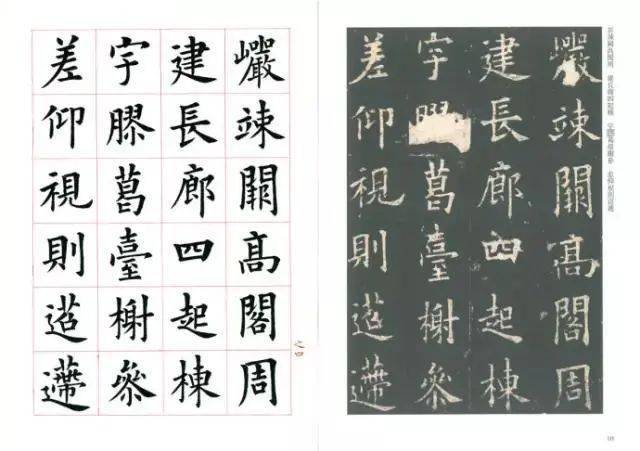 巗竦闕髙閣周
建長廊四起棟
宇膠葛臺榭叅
差仰視則迢遰
之四
巗竦闕髙閣周
建長廊四起棟
宇膠葛臺榭叅
差仰視則迢遰